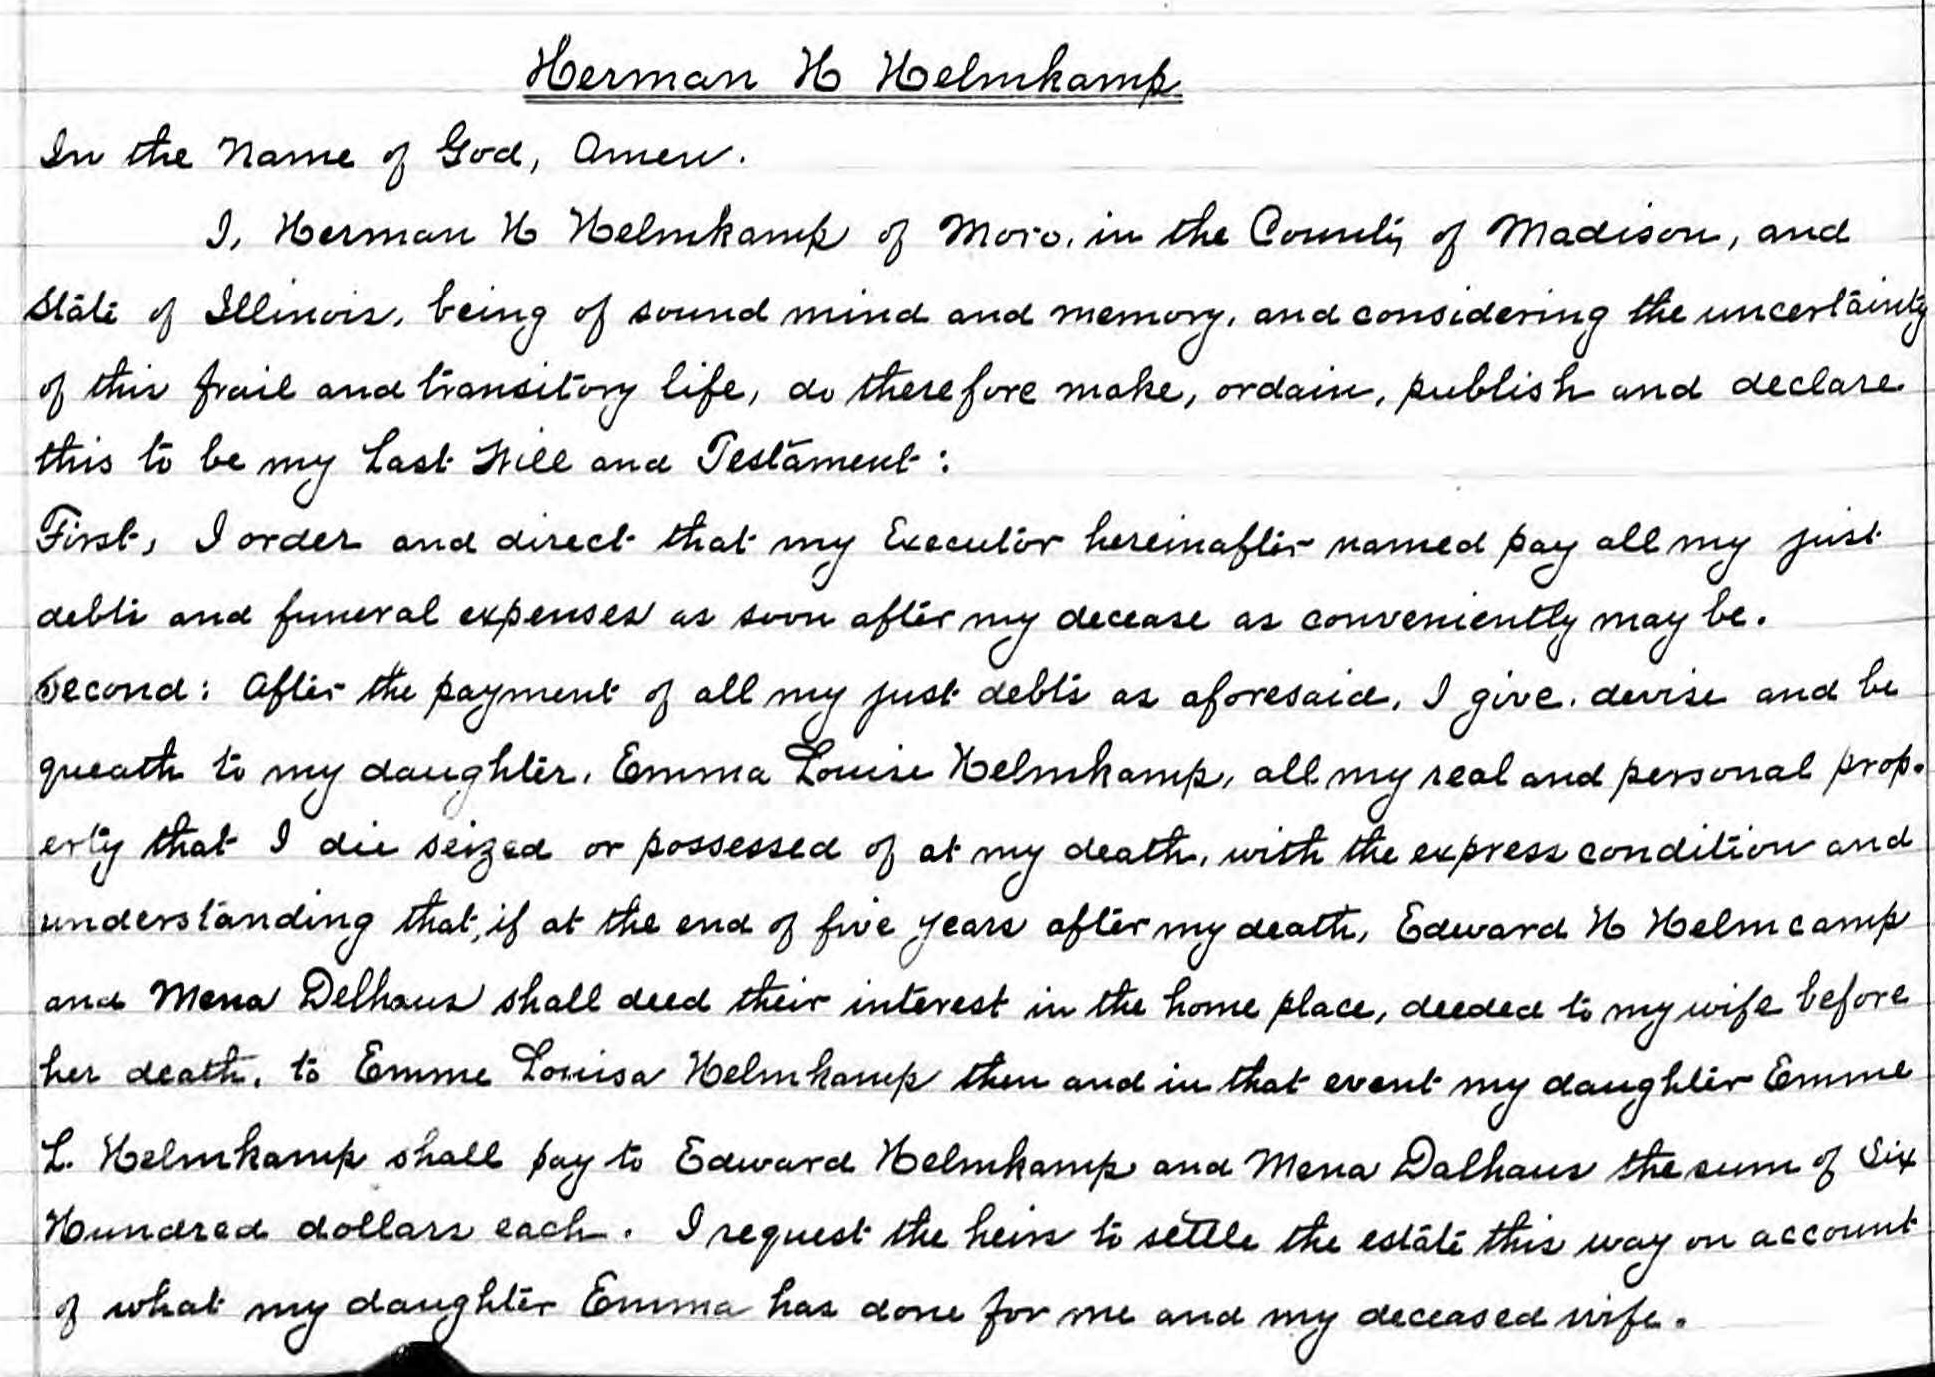 Herman H Helmkamp
In the Name of God, Amen.
I, Herman H Helmkamp of Moro, in the County of Madison, and
State of Illinois, being of sound mind and memory, and considering the uncertainty
of this frail and transitory life, do therefore make, ordain, publish and declare
this to be my Last Will and Testament:
First, I order and direct that my Executor hereinafter named pay all my just
debts and funeral expenses as soon after my decease as conveniently may be.
Second: After the payment of all my just debts as aforesaid, I give, devise and be
queath to my daughter, Emma Louise Helmkamp, all my real and personal prop-
erty that I die seized or possessed of at my death, with the express condition and
understanding that, if at the end of five years after my death, Edward H Helmcamp
and Mena Delhaus shall deed their interest in the home place, deeded to my wife before
her death, to Emme Louisa Helmkamp then and in that event my daughter Emme
L. Helmkamp shall pay to Edward Helmkamp and Mena Dalhaus the sum of Six
Hundred dollars each. I request the heirs to settle the estate this way on account
of what my daughter Emma has done for me and my deceased wife.